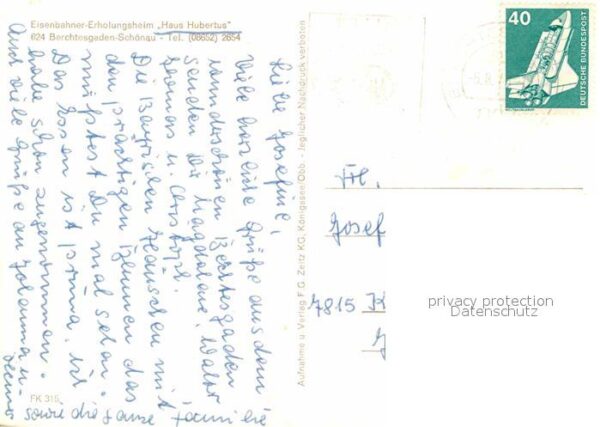 Eisenbahner-Erholungsheim „Haus Hubertus"
624 Berchtesgaden-Schönau - Tel. (08652) 2654
Liebe Josefine,
Viele herzliche Grüße aus dem
wunderschönen Berchtesgaden
senden Dir Magdalena, Walter
Thomas u. Christoph.
Die Bayrischen Häuschen mit
den prächtigen Blumen das
müßtest Du mal sehen.
Das Essen ist prima, ich
habe schon zugenommen.
Auch viele Grüße an
sowie die ganze Familie
FK 315
Aufnahme u. Verlag F.G. Zeitz KG, Königssee/Obb. - Jeglicher Nachdruck verboten
40
DEUTSCHE BUNDESPOST
Frl.
Josef
7815 K
privacy protection
Datenschutz